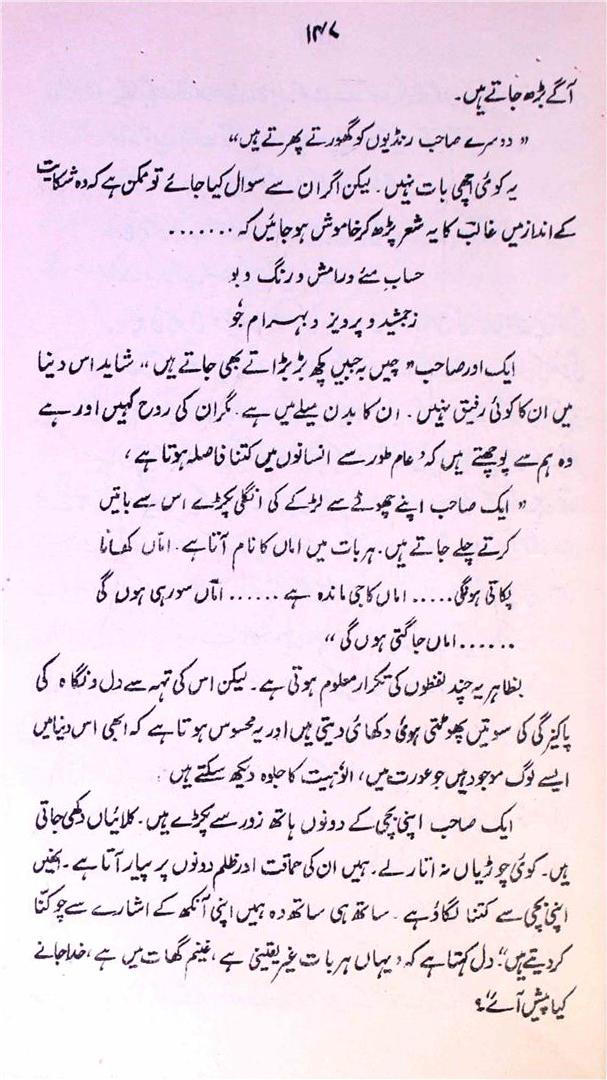 ۱۴۷
آگے بڑھ جاتے ہیں۔
” دوسرے صاحب رنڈیوں کو گھورتے پھرتے ہیں “
یہ کوئی اچھی بات نہیں۔ لیکن اگر ان سے سوال کیا جائے تو ممکن ہے کہ وہ شکایت
کے انداز میں غالبؔ کا یہ شعر پڑھ کر خاموش ہو جائیں کہ .......
حساب مئے و رامش و رنگ و بو
زجمشید و پرویز و بہرام جُو
ایک اور صاحب ” چیں بہ جبیں کچھ بڑبڑاتے بھی جاتے ہیں “ شاید اس دنیا
میں ان کا کوئی رفیق نہیں۔ ان کا بدن میلے میں ہے۔ مگر ان کی روح کہیں اور ہے
وہ ہم سے پوچھتے ہیں کہ ’ عام طور سے انسانوں میں کتنا فاصلہ ہوتا ہے ،
” ایک صاحب اپنے چھوٹے سے لڑکے کی انگلی پکڑے اس سے باتیں
کرتے چلے جاتے ہیں۔ ہر بات میں اماں کا نام آتا ہے۔ اماں کھانا
پکاتی ہونگی..... اماں کا جی ماندہ ہے ...... اماں سو رہی ہوں گی
...... اماں جاگتی ہوں گی “
بظاہر یہ چند لفظوں کی تکرار معلوم ہوتی ہے۔ لیکن اس کی تہہ سے دل و نگاہ کی
پاکیزگی کی سوتیں پھوٹتی ہوئی دکھائی دیتی ہیں اور یہ محسوس ہوتا ہے کہ ابھی اس دنیا میں
ایسے لوگ موجود ہیں جو عورت میں، الوٗہیت کا جلوہ دیکھ سکتے ہیں
ایک صاحب اپنی بچی کے دونوں ہاتھ زور سے پکڑے ہیں۔ کلائیاں دکھی جاتی
ہیں۔ کوئی چوڑیاں نہ اتار لے۔ ہمیں ان کی حماقت اور ظلم دونوں پر پیار آتا ہے۔ انھیں
اپنی بچی سے کتنا لگاؤ ہے۔ ساتھ ہی ساتھ وہ ہمیں اپنی آنکھ کے اشارے سے چوکنّا
کر دیتے ہیں“۔ دل کہتا ہے کہ ’ یہاں ہر بات غیر یقینی ہے ، غنیم گھات میں ہے ، خدا جانے
کیا پیش آئے“؟